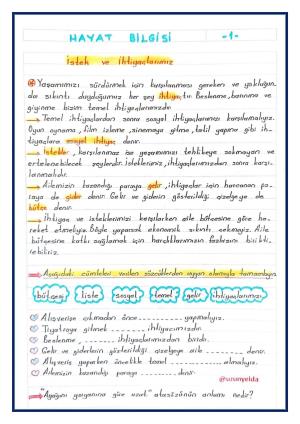 HAYAT BİLGİSİ -1-
İstek ve İhtiyaçlarımız
Yaşamımızı sürdürmek için karşılanması gereken ve yokluğun
da sıkıntı duyduğumuz her şey ihtiyaçtır. Beslenme, barınma ve
giyinme bizim temel ihtiyaçlarımızdır.
Temel ihtiyaçlardan sonra sosyal ihtiyaçlarımızı karşılamalıyız.
Oyun oynama, film izleme, sinemaya gitme, tatil yapma gibi ih-
tiyaçlara sosyal ihtiyaç denir.
İstekler, karşılanmaz ise yaşamımızı tehlikeye sokmayan ve
ertelenebilecek şeylerdir. isteklerimiz, ihtiyaçlarımızdan sonra karşı-
lanmalıdır.
Ailemizin kazandığı paraya gelir, ihtiyaçlar için harcanan pa-
raya da gider denir. Gelir ve giderin gösterildiği çizelgeye de
bütçe denir.
İhtiyaç ve isteklerimizi karşılarken aile bütçesine göre ha-
reket etmeliyiz. Böyle yaparsak ekonomik sıkıntı çekmeyiz. Aile
bütçesine katkı sağlamak için harçlıklarımızın fazlasını birikti-
rebiliriz.
Aşağıdaki cümleleri verilen sözcüklerden uygun olanıyla tamamlayın.
bütçesi liste sosyal temel gelir ihtiyaçlarımızı
Alışverişe çıkmadan önce ---------- yapmalıyız.
Tiyatroya gitmek ---------- ihtiyacımızdır.
Beslenme, ---------- ihtiyaçlarımızdan biridir.
Gelir ve giderlerin gösterildiği çizelgeye aile ---------- denir.
Alışveriş yaparken öncelikle temel ---------- almalıyız.
Ailemizin kazandığı paraya ---------- denir.
@sinemyelda
"Ayağını yorganına göre uzat" atasözünün anlamı nedir?